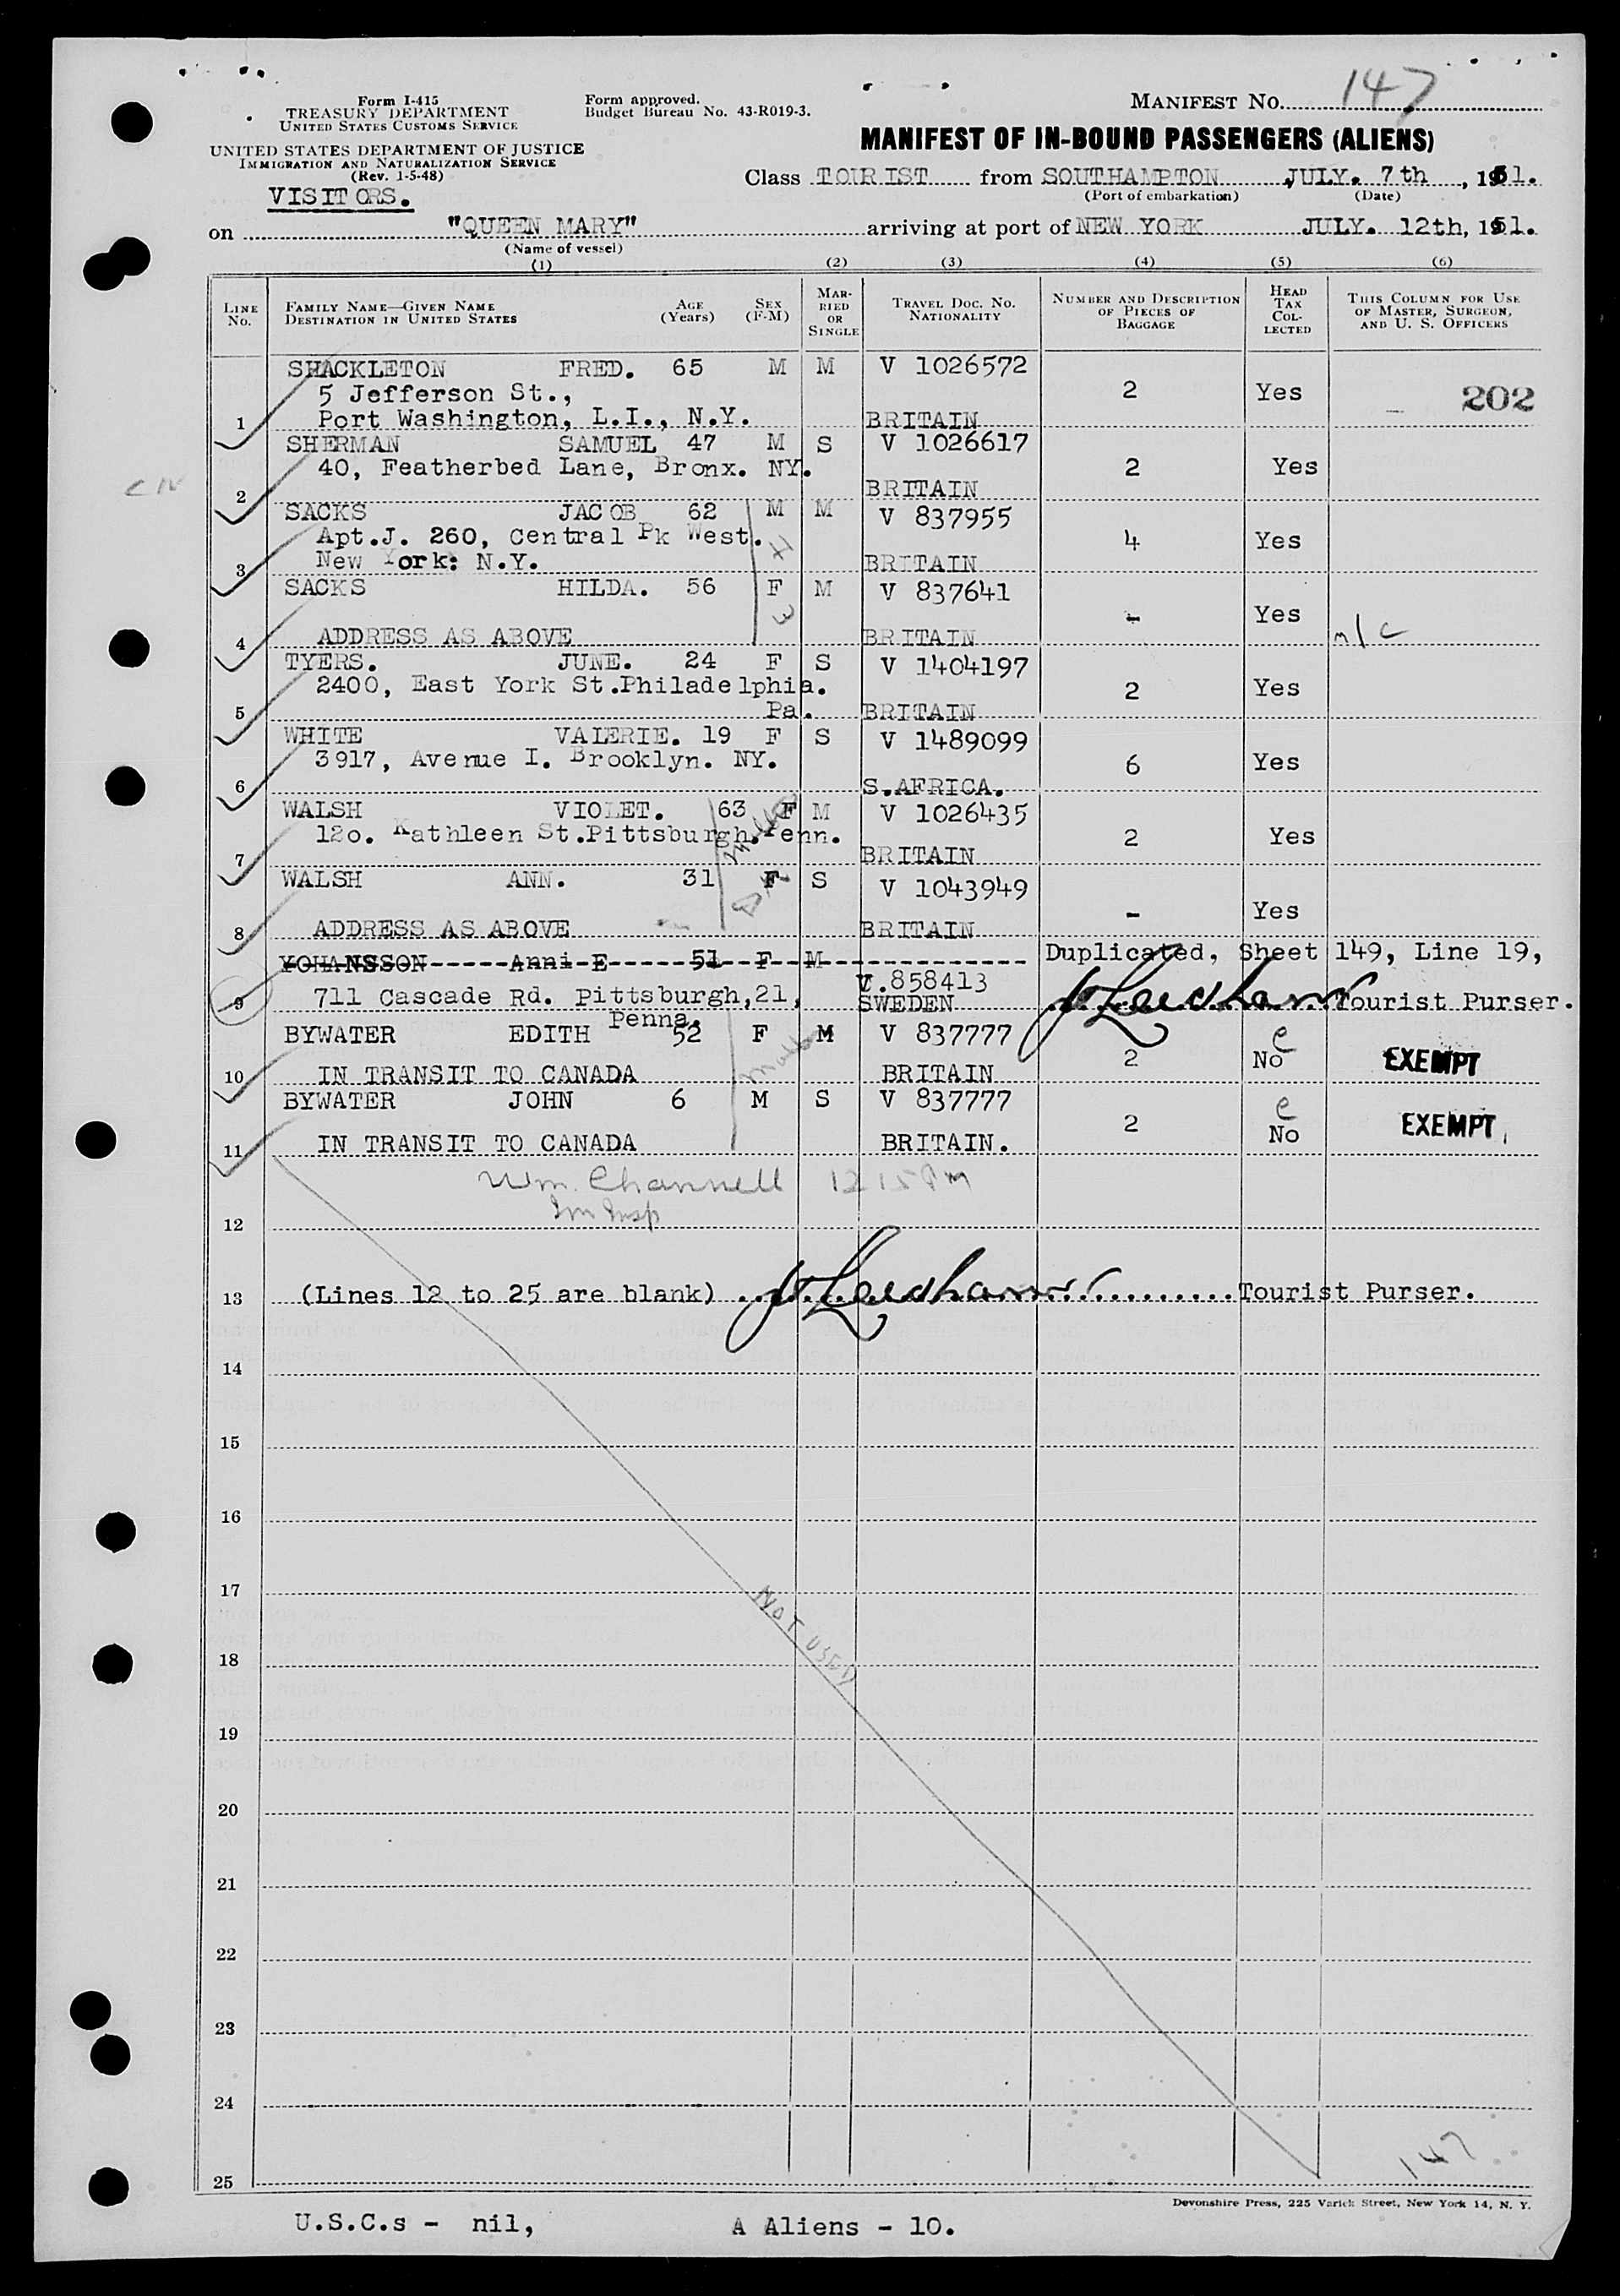 147
Form I-415
TREASURY DEPARTMENT
UNITED STATES CUSTOMS SERVICE
Form approved.
Budget Bureau No. 43-R019-3.
MANIFEST NO.
UNITED STATES DEPARTMENT OF JUSTICE
IMMIGRATION AND NATURALIZATION SERVICE
(Rev. 1-5-48)
MANIFEST OF IN-BOUND PASSENGERS (ALIENS)
VISITORS.
Class TOURIST from SOUTHAMPTON JULY. 7th, 1951.
(Port of embarkation) (Date)
on "QUEEN MARY" arriving at port of NEW YORK JULY. 12th, 1951.
(Name of vessel)
(1) (2) (3) (4) (5) (6)
LINE No. FAMILY NAME—GIVEN NAME DESTINATION IN UNITED STATES AGE (Years) SEX (F-M) MARRIED OR SINGLE TRAVEL DOC. NO. NATIONALITY NUMBER AND DESCRIPTION OF PIECES OF BAGGAGE HEAD TAX COLLECTED THIS COLUMN FOR USE OF MASTER, SURGEON, AND U. S. OFFICERS
SHACKLETON FRED. 65 M M V 1026572
5 Jefferson St., 2 Yes 202
1 Port Washington, L.I., N.Y. BRITAIN
SHERMAN SAMUEL 47 M S V 1026617
40, Featherbed Lane, Bronx. NY. 2 Yes
2 BRITAIN
SACKS JACOB 62 M M V 837955
Apt.J. 260, Central Pk West. 4 Yes
3 New York: N.Y. BRITAIN
SACKS HILDA. 56 F M V 837641
- Yes
4 ADDRESS AS ABOVE BRITAIN n/c
TYERS. JUNE. 24 F S V 1404197
2400, East York St.Philadelphia. 2 Yes
5 Pa. BRITAIN
WHITE VALERIE. 19 F S V 1489099
3917, Avenue I. Brooklyn. NY. 6 Yes
6 S.AFRICA.
WALSH VIOLET. 63 F M V 1026435
120. Kathleen St.Pittsburgh.Penn. 2 Yes
7 BRITAIN
WALSH ANN. 31 F S V 1043949
- Yes
8 ADDRESS AS ABOVE BRITAIN
YOHANSSON-----Anni-E-----51--F--M Duplicated, Sheet 149, Line 19,
V.858413
9 711 Cascade Rd. Pittsburgh,21, SWEDEN Tourist Purser.
Penna.
BYWATER EDITH 52 F M V 837777
2 No EXEMPT
10 IN TRANSIT TO CANADA BRITAIN
BYWATER JOHN 6 M S V 837777
2 No EXEMPT
11 IN TRANSIT TO CANADA BRITAIN.
Wm. Channell 12 15 PM
Im Insp
12
13 (Lines 12 to 25 are blank) Tourist Purser.
14
15
16
17
NOT USED
18
19
20
21
22
23
24
147
25
Devonshire Press, 225 Varick Street, New York 14, N. Y.
U.S.C.s - nil, A Aliens - 10.